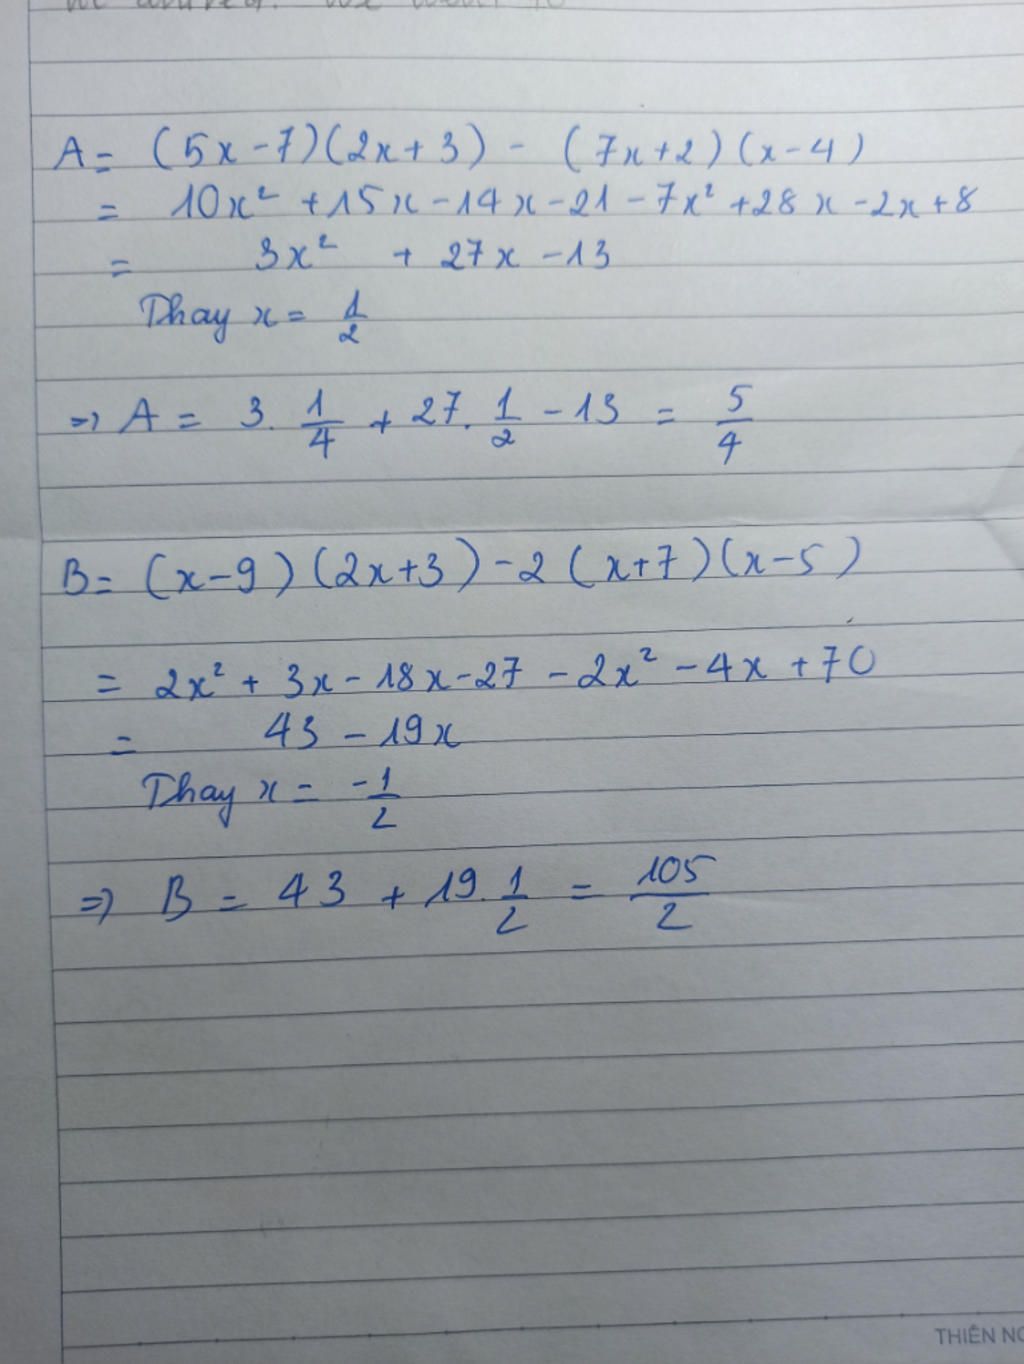 A = (5x - 7)(2x + 3) - (7x + 2)(x - 4)
= 10x² + 15x - 14x - 21 - 7x² + 28x - 2x + 8
= 3x² + 27x - 13
Thay x = 1/2
=> A = 3. 1/4 + 27. 1/2 - 13 = 5/4
B = (x - 9)(2x + 3) - 2(x + 7)(x - 5)
= 2x² + 3x - 18x - 27 - 2x² - 4x + 70
= 43 - 19x
Thay x = -1/2
=> B = 43 + 19. 1/2 = 105/2
THIÊN